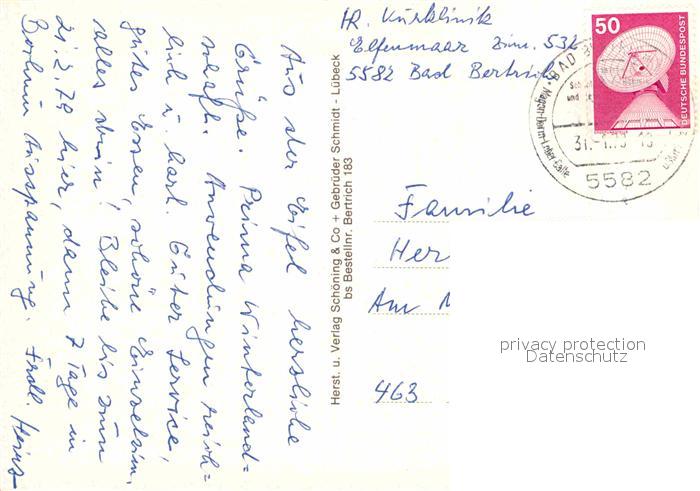 Aus der Eifel herzliche
Grüße. Prima Winterland=
schaft. Anwendungen reich=
lich u. hart. Guter Service,
gutes Essen, schöne Einzelzim.
alles drin! Bleibe bis zum
21.2.79 hier, dann 7 Tage in
Bochum Ausspannung. Frdl. Heinz
Herst. u. Verlag Schöning & Co + Gebrüder Schmidt - Lübeck
bs Bestellnr. Bertrich 183
Kurklinik
Elfenmaar Zim. 532
5582 Bad Bertrich
50
DEUTSCHE BUNDESPOST
BAD
Magen-Darm-Leber-Galle
5582
Familie
Her
Am
463
privacy protection
Datenschutz